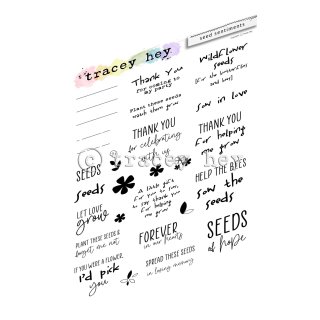 tracey hey
seed sentiments
Thank You
for coming to
my party
Plant these seeds
watch them grow
THANK YOU
for celebrating
with us
wildflower
seeds
(for the butterflies
and bees)
sow in love
THANK YOU
for helping
me grow
© tracey hey
SEEDS
seeds
LET LOVE
grow
PLANT THESE SEEDS &
forget me not
IF YOU WERE A FLOWER,
I'd pick
you
A little gift
for you to sow,
to say thank you
for helping
me grow
FOREVER
in our hearts
SPREAD THESE SEEDS
in loving memory
HELP THE BEES
sow the
seeds
SEEDS
of hope